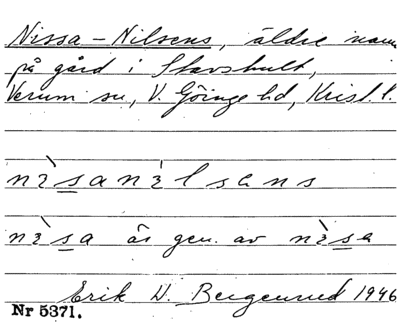 Nissa-Nilsens, äldre namn
på gård i Stavshult,
Verum sn, V. Göinge hd, Krist. l.
nɪ̀sanɪ̀lsəns
nɪ̀sa är gen. av nɪ̀sə
Erik W. Bergenrud 1946
Nr 5371.